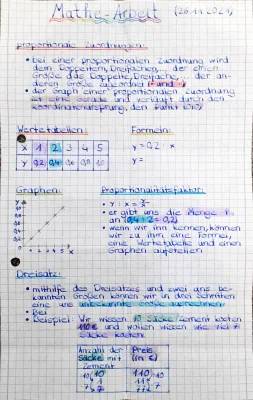 Mathe-Arbeit (26.11.2021)
proportionale Zuordnungen:
• bei einer proportionalen Zuordnung wird
dem Doppelten, Dreifachen,... der einen
Größe das Doppelte, Dreifache,... der an-
deren Größe zugeordnet
• der Graph einer proportionalen Zuordnung
ist eine Gerade und verläuft durch den
Koordinatenursprung, den Punkt
Wertetabellen: Formeln:
x 1 2 3 4 5
y 0,2 0,4 0,6 0,8 1,0
y = 0,2 · x
y =
Graphen: Proportionalitätsfaktor:
• y : x =
• er gibt uns die Menge
an (0,4 : 2 = 0,2)
• wenn wir ihn kennen, können
wir zu ihm eine Formel,
eine Wertetabelle und einen
Graphen aufstellen
Dreisatz:
• mithilfe des Dreisatzes und zwei uns be-
kannten Größen können wir in drei Schritten
eine uns unbekannte Größe ausrechnen
• Bei
• Beispiel: Wir wissen 10 Säcke Zement kosten
110€ und wollen wissen wie viel 7
Säcke kosten.
Anzahl der Preis
Säcke mit (in €)
Zement
10 110
1 11
7 77